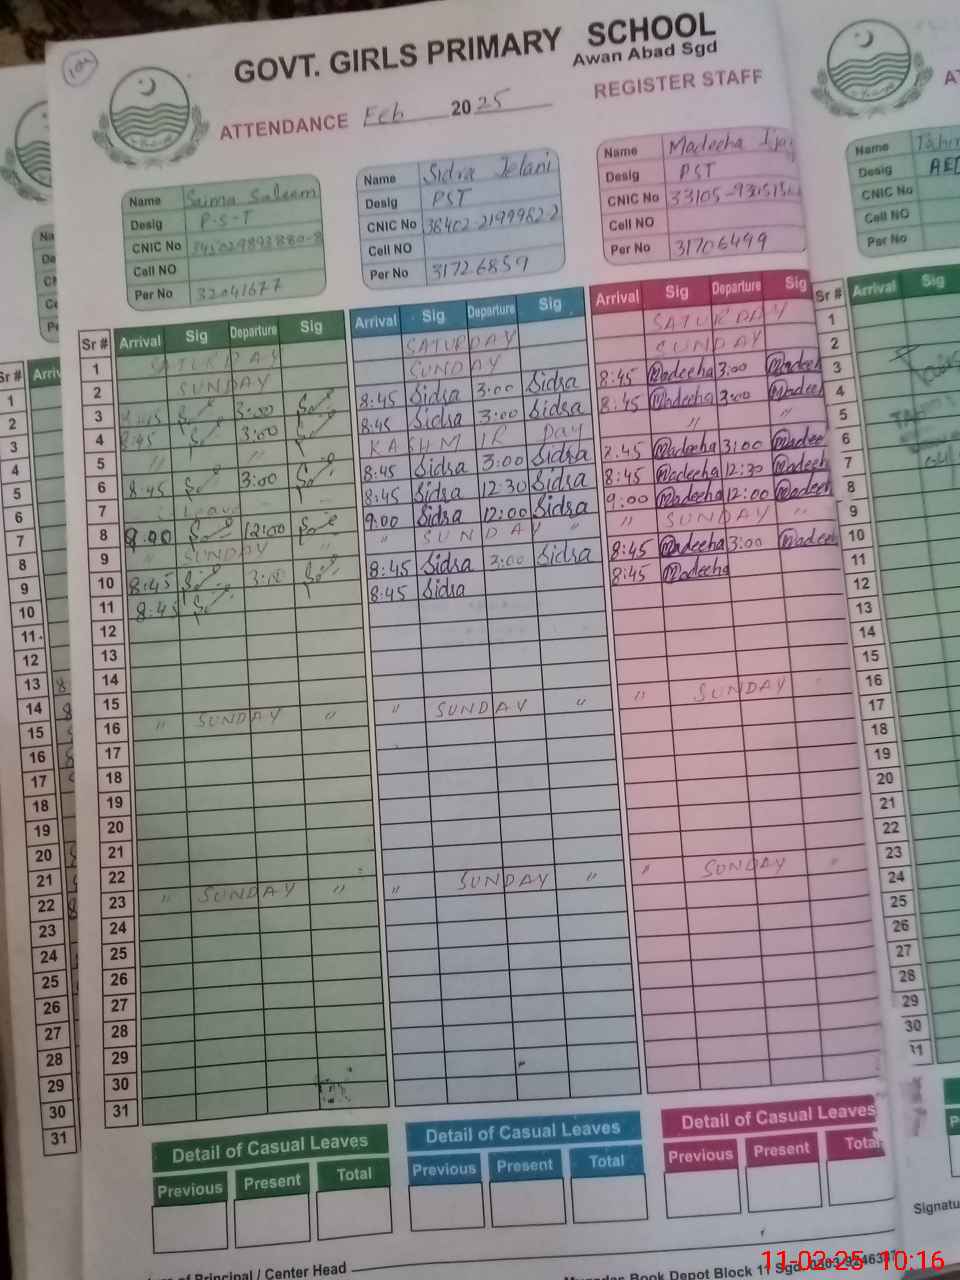 GOVT. GIRLS PRIMARY SCHOOL
Awan Abad Sgd
ATTENDANCE Feb 2025
REGISTER STAFF
Name Saima Saleem
Desig P-S-T
CNIC No
Cell NO
Per No 32041677
Name Sidra Jelani
Desig PST
CNIC No 38402-2199982-2
Cell NO
Per No 31726859
Name Madeeha
Desig PST
CNIC No 33105-
Cell NO
Per No 31706499
Name
Desig
CNIC No
Cell NO
Per No
Sr # Arrival Sig Departure Sig Arrival Sig Departure Sig Arrival Sig Departure Sig Sr # Arrival Sig
1 SATURDAY SATURDAY SATURDAY
2 SUNDAY SUNDAY SUNDAY
3 8:45 3:00 8:45 Sidsa 3:00 Sidsa 8:45 Madeeha 3:00
4 8:45 3:00 8:45 Sidsa 3:00 Sidsa 8:45 Madeeha 3:00
5 " " KASHMIR Day " "
6 8:45 3:00 8:45 Sidsa 3:00 Sidsa Madeeha 3:00
7 Leave 8:45 Sidsa 12:30 Sidsa 8:45 Madeeha 12:30
8 9:00 12:00 9:00 Sidsa 12:00 Sidsa 9:00 Madeeha 12:00
9 " SUNDAY " " SUNDAY " " SUNDAY "
10 8:45 3:00 8:45 Sidsa 3:00 Sidsa 8:45 Madeeha 3:00
11 8:45 8:45 Sidsa 8:45 Madeeha
12
13
14
15
16 " SUNDAY " " SUNDAY " " SUNDAY
17
18
19
20
21
22
23 " SUNDAY " " SUNDAY " " SUNDAY "
24
25
26
27
28
29
30
31
Detail of Casual Leaves
Previous Present Total
Detail of Casual Leaves
Previous Present Total
Detail of Casual Leaves
Previous Present Total
Principal / Center Head
Book Depot Block 11 Sgd.
11-02-25 10:16